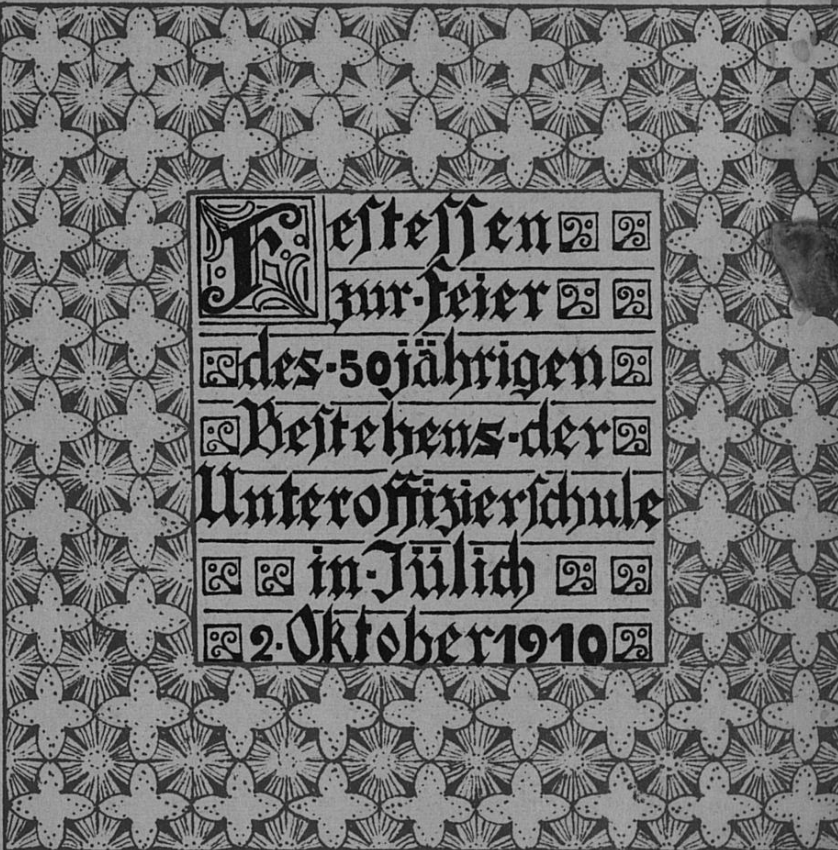 Festessen
zur·Feier
des·50jährigen
Bestehens·der
Unteroffizierschule
in·Jülich
2·Oktober 1910